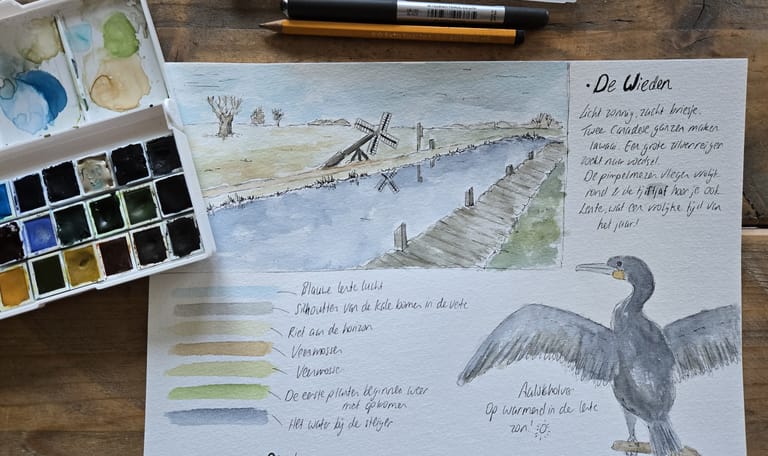 • De Wieden
Licht zonnig, zacht briesje.
Twee Canadese ganzen maken
lawaai. Een grote zilverreiger
zoekt naar voedsel.
De pimpelmezen vliegen vrolijk
rond & de tjiftjaf hoor je ook
Lente, wat een vrolijke tijd van
het jaar!
Blauwe lente lucht
Silhoutten van de kale bomen in de verte
Riet aan de horizon
Veenmossen
Veenmossen
De eerste planten beginnen weer
met opkomen
Het water bij de steiger
Aalscholver
Op warmend in de lente
zon!